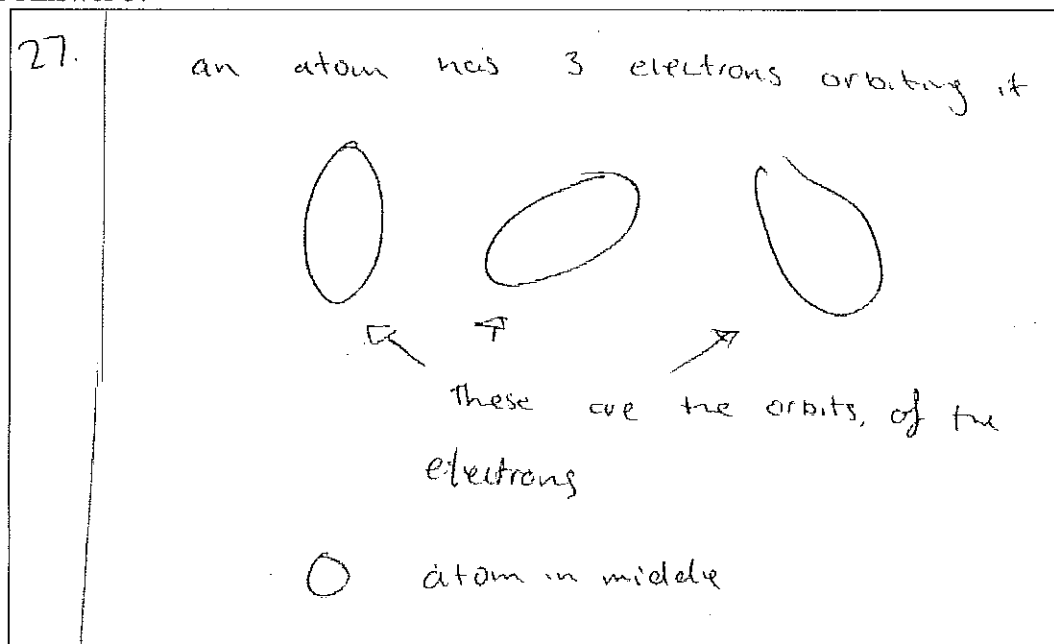 27.
an atom has 3 electrons orbiting it
These are the orbits, of the
electrons
atom in middle